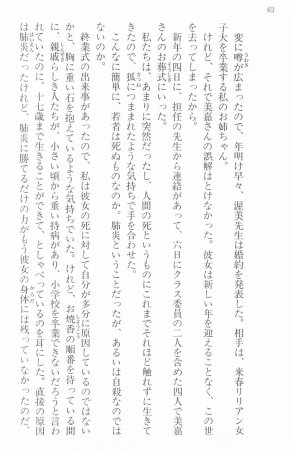 62
変に噂が広まったので、年明け早々、渥美先生は婚約を発表した。相手は、来春リリアン女
子大を卒業する私のお姉ちゃん。
けれど、それで美嘉さんの誤解はとけなかった。彼女は新しい年を迎えることなく、この世
を去ってしまったから。
新年の四日に、担任の先生から連絡があって、六日にクラス委員の二人を含めた四人で美嘉
さんのお葬式にいった。
私たちは、あまりに突然だったし、人間の死というものにこれまでそれほど触れずに生きて
きたので、孤につままれたような気持ちで手を合わせた。
こんなに簡単に、若者は死ぬものなのか。肺炎ということだったが、あるいは自殺のでは
なかったのか。
終業式の出来事があったので、私は彼女の死に対して自分が多分に原因しているのではない
かと、胸に重い石を抱えているような気持ちでいた。けれど、お焼香の順番を待っている間
に、親戚らしきひとたちが、小さい頃から重い持病があり、小学校を卒業できないだろうと言わ
れていたのに、十七歳まで生きることができて、としゃべっているのを耳にした。直接の原因
は肺炎だったけれど、肺炎に勝てるだけの力がもう彼女の身体には残っていなかったのだ、